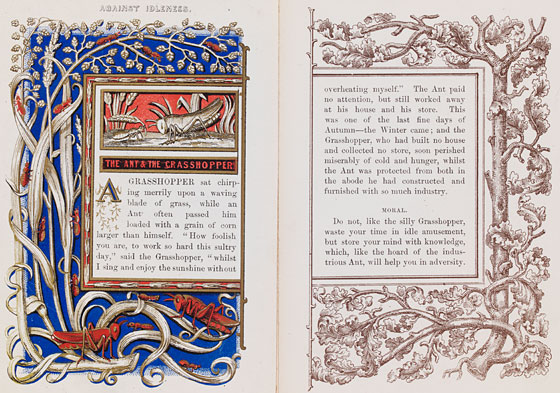 AGAINST IDLENESS.
THE ANT & THE GRASSHOPPER
A GRASSHOPPER sat chirp-
ing merrily upon a waving
blade of grass, while an
Ant often passed him
loaded with a grain of corn
larger than himself. "How foolish
you are, to work so hard this sultry
day," said the Grasshopper, "whilst
I sing and enjoy the sunshine without
overheating myself." The Ant paid
no attention, but still worked away
at his house and his store. This
was one of the last fine days of
Autumn—the Winter came; and the
Grasshopper, who had built no house
and collected no store, soon perished
miserably of cold and hunger, whilst
the Ant was protected from both in
the abode he had constructed and
furnished with so much industry.
MORAL.
Do not, like the silly Grasshopper,
waste your time in idle amusement,
but store your mind with knowledge,
which, like the hoard of the indus-
trious Ant, will help you in adversity.